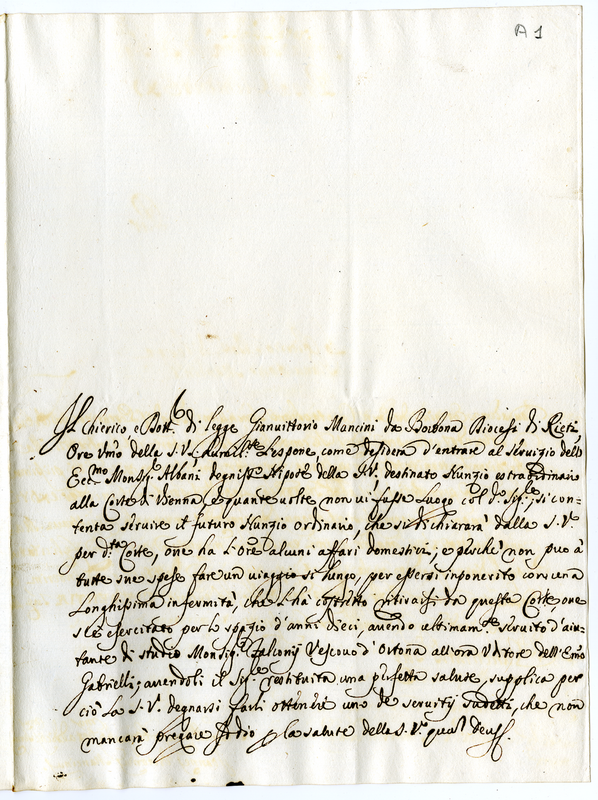 A 1
Il Chierico e Dott.r di legge Gianuittorio Mancini da Borbona Diocesi di Rieti,
Ore Vmo della S.V. l'espone, come desidera d'entrare al seruizio dell'
Ecc.mo Monsig.r Albani degniss.o Nipote della S.V. destinato Nunzio estraordinario
alla Corte di Vienna, e quante uolte non ui fusse luogo col d.o Sig.re, si con=
tenta seruire il futuro Nunzio ordinario, che si dichiararà dalla S.V.
per d.ta Corte, oue ha l'Ore alcuni affari domestici; e perche non può à
tutte sue spese fare un uiaggio si lungo, per essersi inpouerito con una
Longhissima infermità, che l'hà costretto ritirarsi da questa Corte, oue
s'è esercitato per lo spazio d'anni dieci, auendo ultimam.te seruito d'aiu=
tante di studio Monsig.r Falconij Vescouo d'Ortona all'ora Vditore dell'Emo
Gabrielli; auendoli il Sig.re restituita una perfetta salute, supplica per
ciò la S.V. degnarsi farli ottenere uno de seruitij sudetti, che non
mancarà pregare Iddio p la salute della S.V. quam Deus